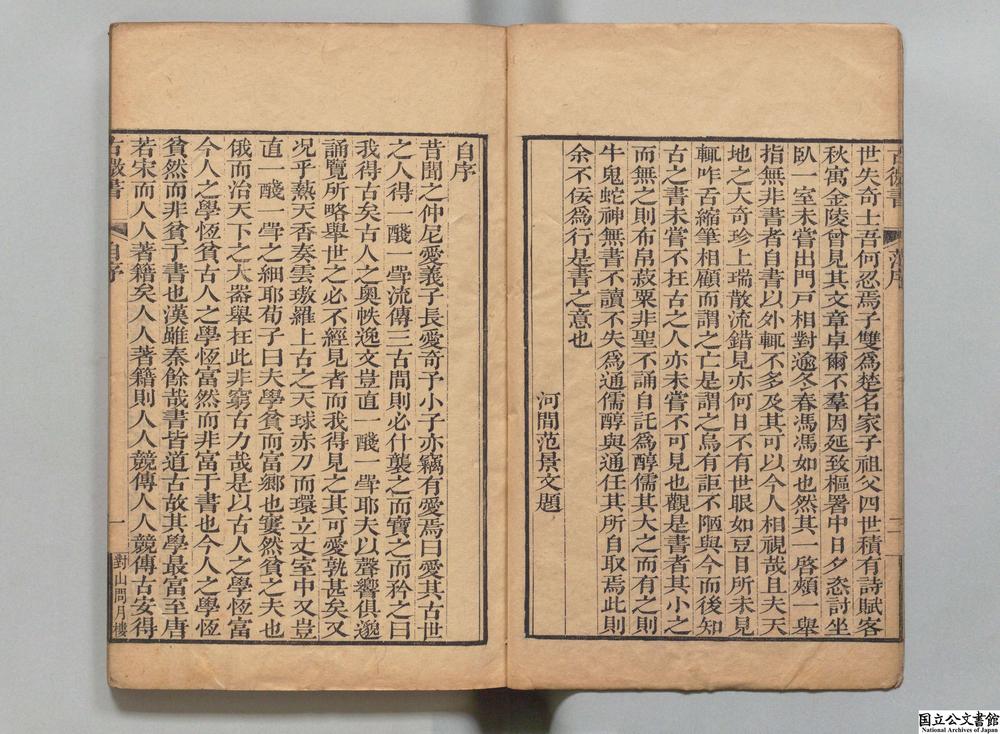 古微書
范序
二
世失奇士吾何忍焉子雙爲楚名家子祖父四世積有詩賦客
秋寓金陵曾見其文章卓爾不羣因延致樞署中日夕恣討坐
臥一室未嘗出門戸相對逾冬春馮馮如也然其一啓頰一舉
指無非書者自書以外輒不多及其可以今人相視哉且夫天
地之大奇珍上瑞散流錯見亦何日不有世眼如豆目所未見
輒咋舌縮筆相顧而謂之亡是謂之烏有詎不陋與今而後知
古之書未嘗不在古之人亦未嘗不可見也觀是書者其小之
而無之則布帛菽粟非聖不誦自託爲醇儒其大之而有之則
牛鬼蛇神無書不讀不失爲通儒醇與通任其所自取焉此則
余不佞爲行是書之意也
河間范景文題
自序
昔聞之仲尼愛義子長愛奇予小子亦竊有愛焉曰愛其古世
之人得一醆一斝流傳三古間則必什襲之而寶之而矜之曰
我得古矣古人之奧帙逸文豈直一醆一斝耶夫以聲響俱邈
誦覽所略舉世之必不經見者而我得見之其可愛孰甚矣又
况乎熱天香奏雲璈羅上古之天球赤刀而環立丈室中又豈
直一醆一斝之細耶荀子曰夫學貧而富鄉也寠然貧之夫也
俄而治天下之大器舉在此非窮古力哉是以古人之學恆富
今人之學恆貧古人之學恆富然而非富于書也今人之學恆
貧然而非貧于書也漢雖秦餘哉書皆道古故其學最富至唐
若宋而人人著籍矣人人著籍則人人競傳人人競傳古安得
古微書
自序
一
對山問月樓
国立公文書館
National Archives of Japan